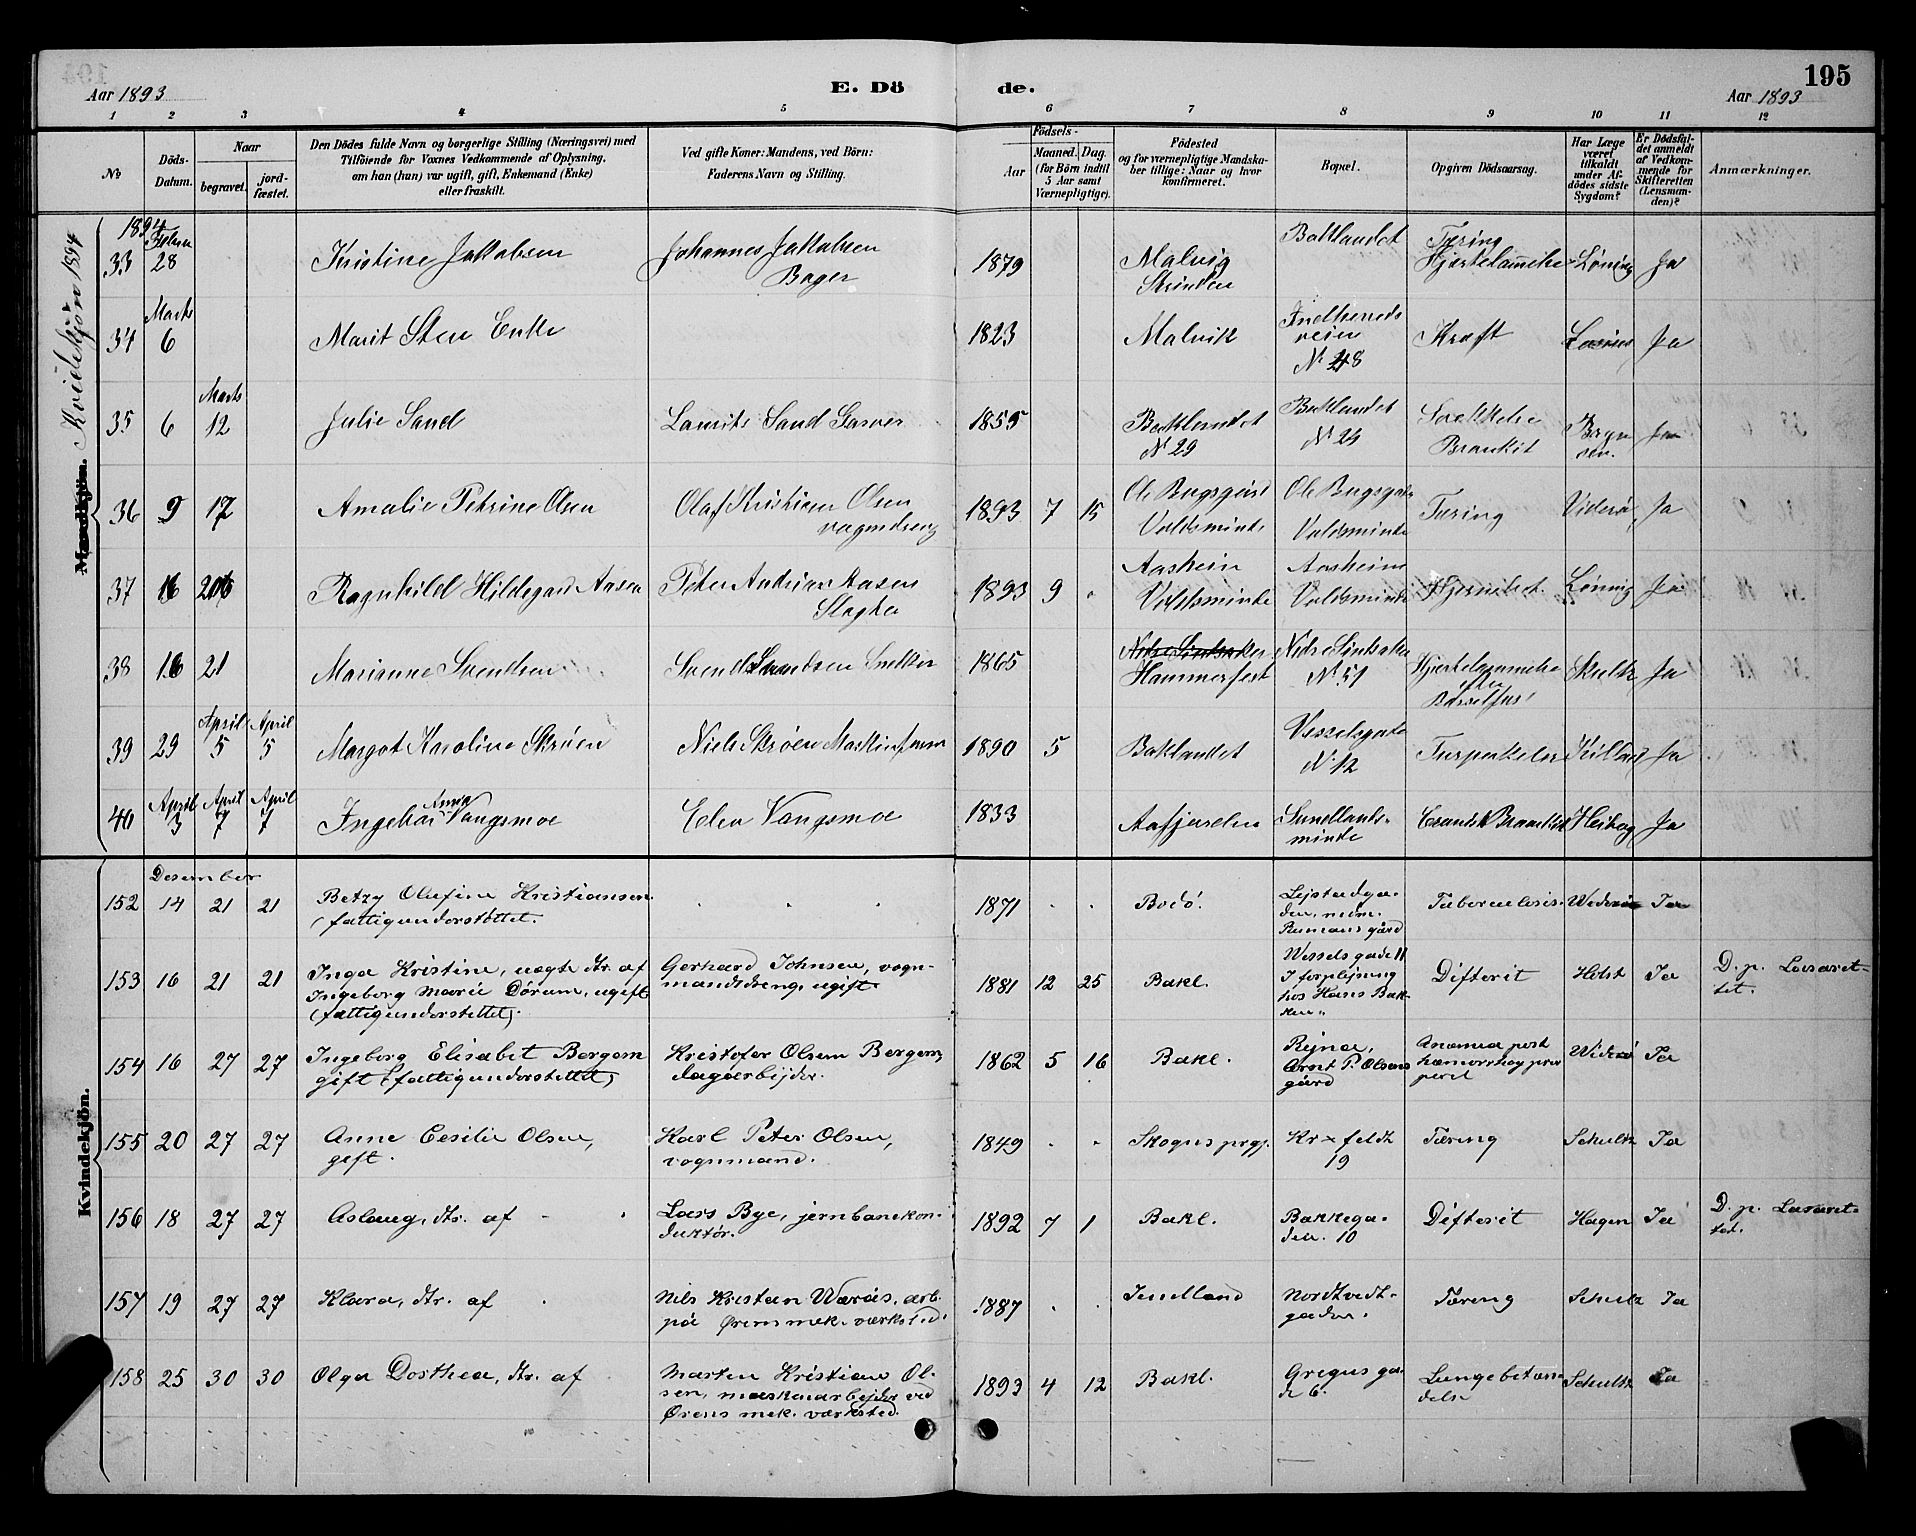 Aar 1893
E. Dö de.
195
Aar 1893
1 2 3 4 5 6 7 8 9 10 11 12
No
Döds-Datum.
Naar
begravet.
jord-fæstet.
Den Dödes fulde Navn og borgerlige Stilling (Næringsvei) med
Tilföiende for Voxnes Vedkommende af Oplysning,
om han (hun) var ugift, gift, Enkemand (Enke)
eller fraskilt.
Ved gifte Koner: Mandens, ved Börn:
Faderens Navn og Stilling.
Födsels-
Aar
Maaned. Dag
(for Börn indtil
5 Aar samt
Værnepligtige).
Födested
og for værnepligtige Mandska-
ber tillige: Naar og hvor
konfirmeret.
Bopæl.
Opgiven Dödsaarsag.
Har Læge
været
tilkaldt
under Af-
dödes sidste
Sygdom?
Er Dödsfal-
det anmeldt
af Vedkom-
mende for
Skifteretten
(Lensman-
den)?
Anmærkninger.
Mandkjön. Kvidekjön 1894
1894
33 Febru 28 Kristine Jakobsen Johannes Jakobsen Bager 1879 Malvig Strinden Baklandet Tæring Løning Ja
34 Marts 6 Marit Sten Enke 1823 Malvik Indherreds veien N. 48 Kræft Ja
35 6 Marts 12 Julie Sand Laurits Sand Garver 1855 Baklandet N. 29 Baklandet N. 29 Ja
36 9 17 Amalie Petrine Olsen Olaf Kristian Olsen 1893 7 15 Voldsminde Voldsminde Tæring Viderø Ja
37 16 20 Ragnhild Hildegard Aasen Peter Andrias Aasen Slagter 1893 9 Aasheim Voldsminde Aasheim Voldsminde Løning Ja
38 16 21 Marianne Svendsen Svend Svendsen Snekker 1865 Hammerfest N. 51 Ja
39 29 April 5 April 5 Margot Karoline Skrøen Niels Skrøen 1890 5 Baklandet Vesselsgate N. 12 Ja
40 April 3 April 7 April 7 Ingebor Anna Vangsmoe Eden Vangsmoe 1833 Aafjorden Sundlands-minde Ja
Kvindekjön.
Desember
152 14 21 21 Betzy Olufine Kristiansen (fattigunderstøttet. 1871 Bodö. Tuberculosis Ja
153 16 21 21 Inga Kristine, uægte dtr. af
Ingeborg Marie Dörum, ugift
(fattigunderstøttet). Gerhard Johnsen, vogn-
mandsdreng, ugift. 1881 12 25 Bakl. Wesselsgade 11
I forplejning
hos Hans Bak-
ken. Difterit Holst Ja D. p. Lasaret-
tet.
154 16 27 27 Ingeborg Elisabet Bergem
gift (fattigunderstøttet) Kristofer Olsen Bergem,
dagarbejder. 1862 5 16 Bakl. P. Olsens
gård Anæmia post Ja
155 20 27 27 Anne Cesilie Olsen,
gift. Karl Peter Olsen,
vognmand. 1849 Skogns prgj. Kr-feldt
19 Tæring Schultz Ja
156 18 27 27 Aslaug, dtr. af Lars Bye, jernbanekon-
duktør. 1892 7 1 Bakl. Bakkega-
den. 10 Difterit Hagen Ja D. p. Lasaret-
tet.
157 19 27 27 Klara, dtr. af Nils Kristian Værås, arb.
på Ørens mek. værksted. 1887 Innelland Nordtvedt-
gaden. Tæring Schultz Ja
158 25 30 30 Olga Dorthea, dtr. af Marten Kristian Ol-
sen, maskinarbejder ved
Ørens mek. værksted. 1893 4 12 Bakl. Gregus ga-
de 6. Lungebetæn-
delse Schultz Ja